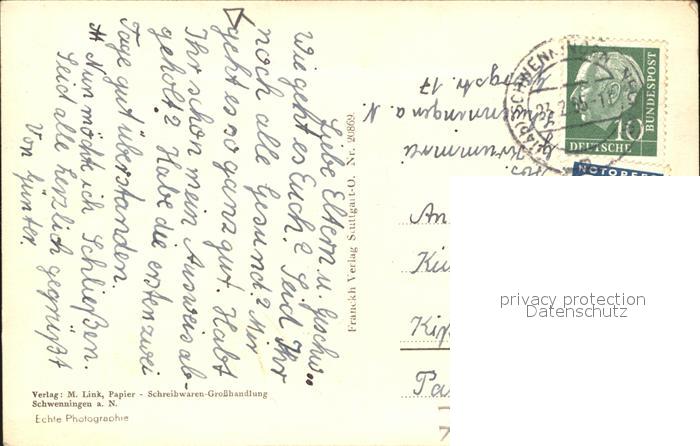 Liebe Eltern u. Geschw..
Wie geht es Euch? Seid Ihr
noch alle Gesund? Mir
geht es so ganz gut. Habt
Ihr schon mein Ausweis ab-
geholt? Habe die ersten zwei
Tage gut überstanden.
Nun möcht ich Schließen.
Seid alle herzlich gegrüßt
Von Günter.
Franckh Verlag Stuttgart-O. Nr. 20809
Schwenningen a. N.
str. 17
An
Verlag: M. Link, Papier - Schreibwaren-Großhandlung
Schwenningen a. N.
Echte Photographie
10
DEUTSCHE
BUNDESPOST
NOTOPFER
privacy protection
Datenschutz